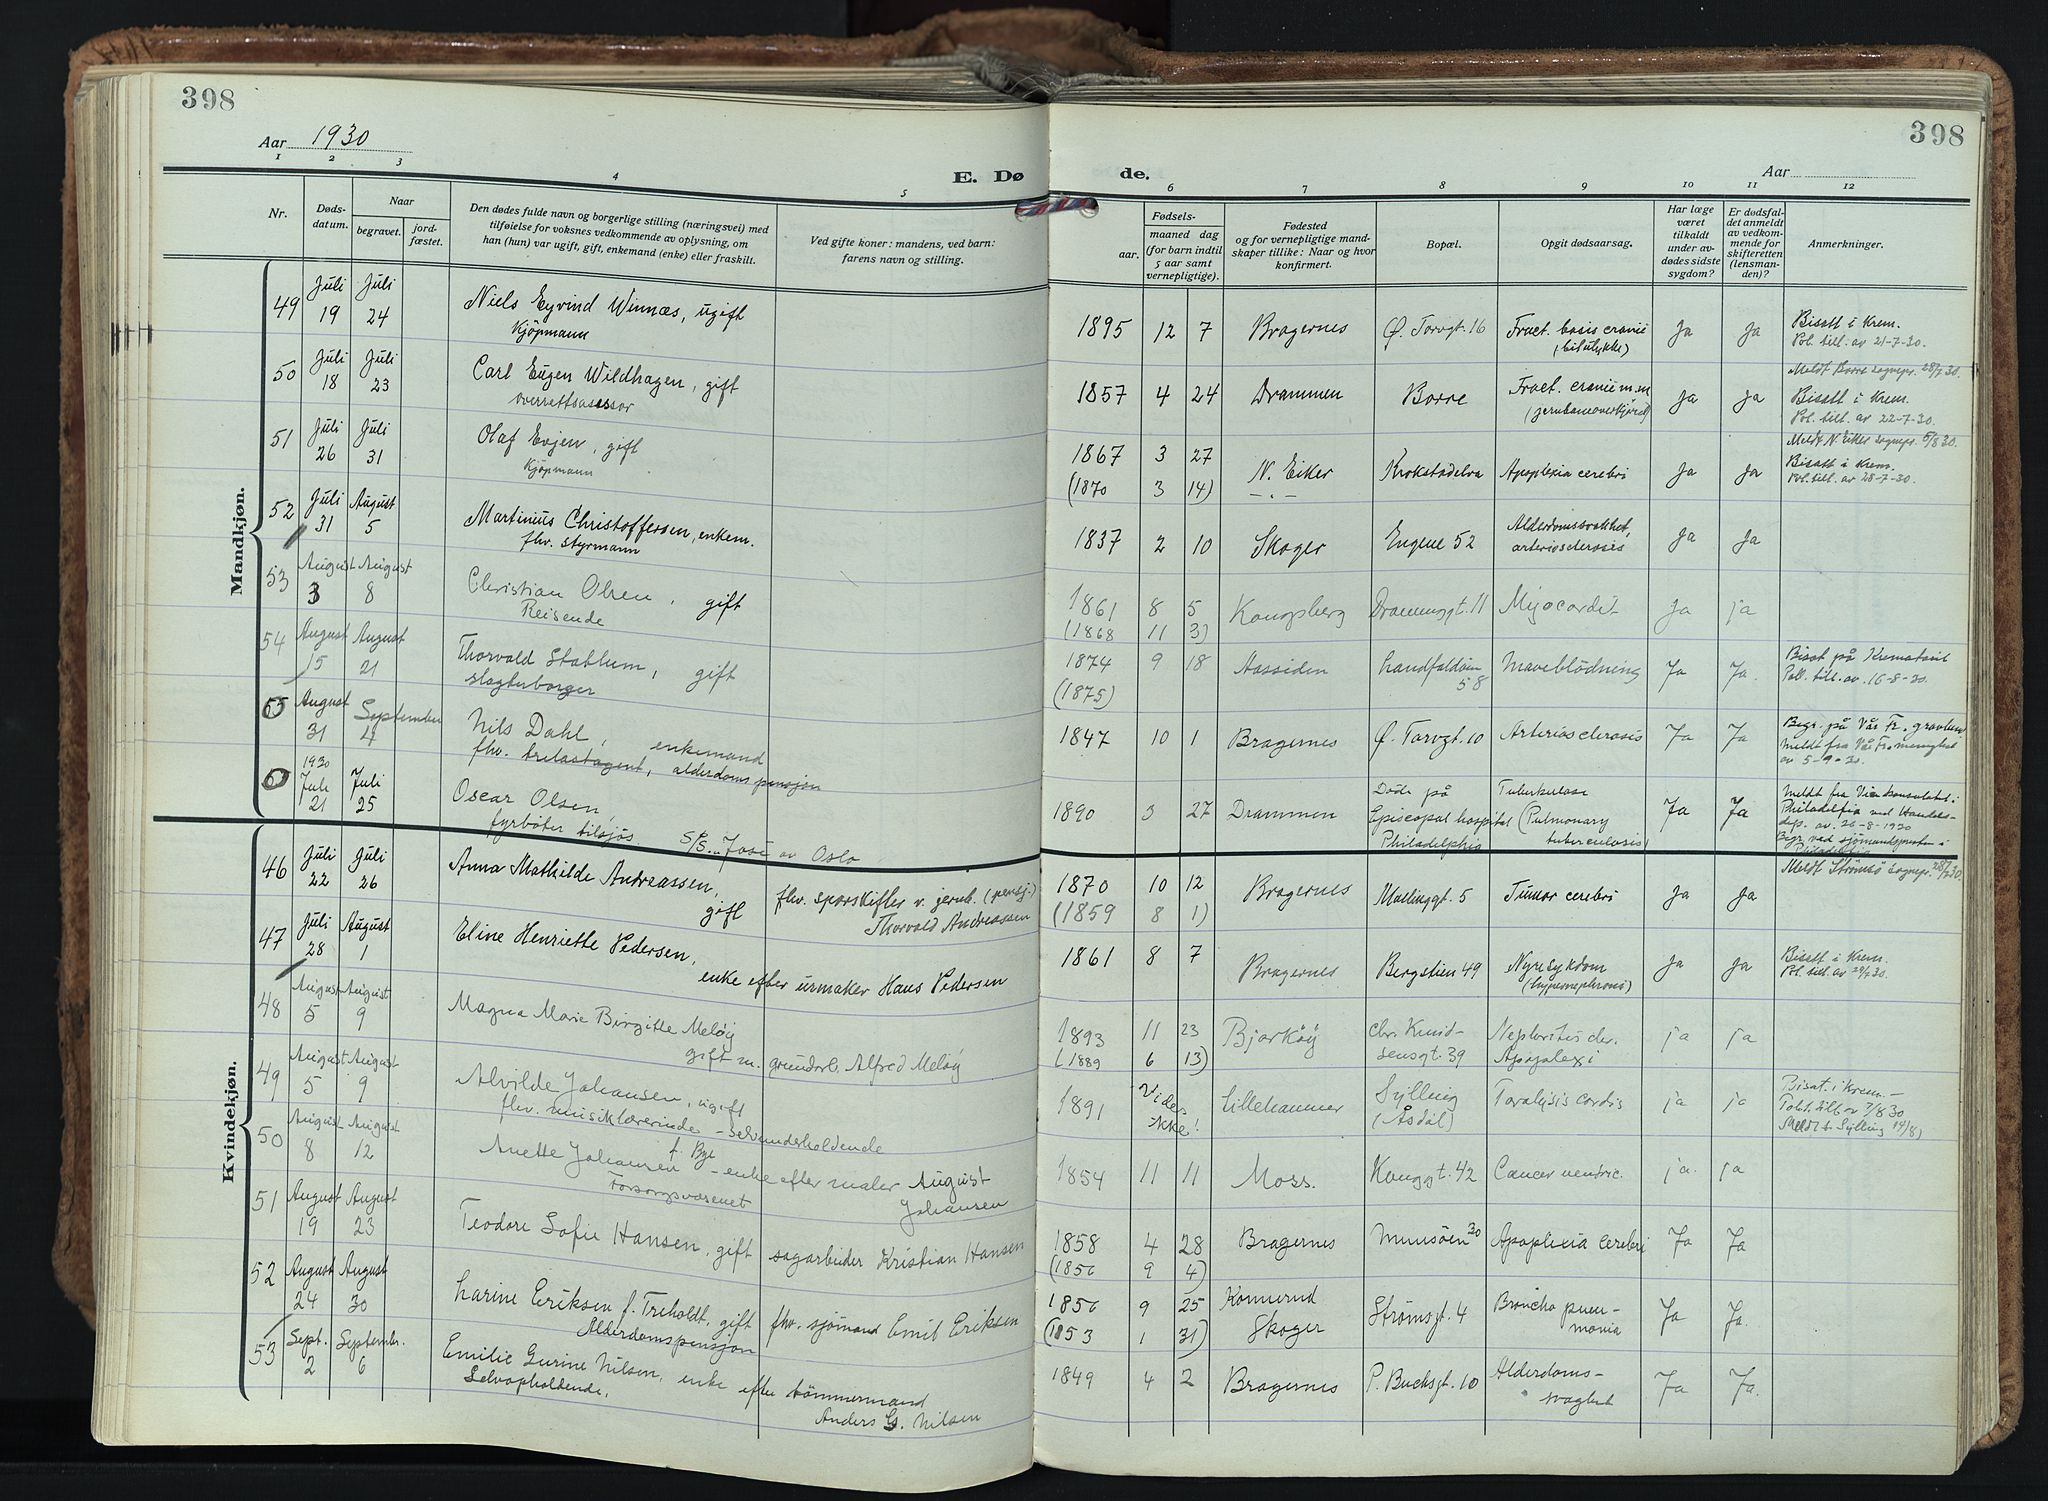 398
398
Aar 1930
Aar
E. Dø
de.
1 2 3 4 5 6 7 8 9 10 11 12
Nr.
Døds-
datum.
Naar
begravet.
jord-
fæstet.
Den dødes fulde navn og borgerlige stilling (næringsvei) med
tilføielse for voksnes vedkommende av oplysning, om
han (hun) var ugift, gift, enkemand (enke) eller fraskilt.
Ved gifte koner: mandens, ved barn:
farens navn og stilling.
Fødsels-
aar.
maaned dag
(for barn indtil
5 aar samt
vernepligtige).
Fødested
og for vernepligtige mand-
skaper tillike: Naar og hvor
konfirmert.
Bopæl.
Opgit dødsaarsag.
Har læge
været
tilkaldt
under av-
dødes sidste
sygdom?
Er dødsfal-
det anmeldt
av vedkom-
mende for
skifteretten
(lensman-
den)?
Anmerkninger.
Mandkjøn.
49 Juli 19 Juli 24 Niels Eyvind Winnæs, ugift
Kjöpmann
1895 12 7 Bragernes Ø. Torvgt. 16 Fract. basis cranii
(bilulykke)
Ja Ja Bisatt i Krem.
Pol. till. av 21-7-30.
50 Juli 18 Juli 23 Carl Eugen Wildhagen, gift
overrettsasessor
1857 4 24 Drammen Borre Fract. cranie m.m
(jernbaneoverkjörsel)
Ja Ja Meldt Borre sognepr. 28/7 30.
Bisatt i Krem.
Pol. till. av 22-7-30.
51 Juli 26 Juli 31 Olaf Evjen, gift
Kjöpmann
1867 3 27 N. Eiker Krokstadelva Apoplexia cerebri
(1870 3 14) - . -
Ja Ja Meldt N. Eiker sognepr. 5/8 30.
Bisatt i Krem.
Pol. till. av 28-7-30.
52 Juli 31 August 5 Martinius Christoffersen, enkem.
fhv. styrmann
1837 2 10 Skoger Engene 52 Alderdomssvakhet,
arteriosclerosis
Ja Ja
53 August 3 August 8 Christian Olsen, gift
Reisende
1861 8 5 Kongsberg Drammsgt. 11 Myocardit
(1868 11 3)
Ja ja
54 August 15 August 21 Thorvald Stallum, gift
slagterborger
1874 9 18 Aassiden Landfaldöen
58 Maveblödning
(1875)
Ja Ja. Bisat på Krematoriet
Poll. till. av. 16-8-30.
55 August 31 September 4 Nils Dahl, enkemand
fhv. trelastagent, alderdomspensjon
1847 10 1 Bragernes Ø. Torvgt. 10 Arteriosclerosis
Ja Ja Begr. på Vår Fr. gravlund
Meldt fra Vår Fr. menighet
av 5-9-30.
0 1930 Juli 21 Juli 25 Oscar Olsen,
fyrböter tilsjös. S/S. "Josi av Oslo
1890 3 27 Drammen Döde på
Episcopal hospital
Philadelphia
Tuberkulose
(Pulmonary
tuberculosis)
Ja Ja Meldt fra Visekonsulatet i
Philadelfia ved Handels-
dep. av 26-8-1930
Begr. ved sjömandspresten i
Philadelfia
Kvindekjøn.
46 Juli 22 Juli 26 Anna Mathilde Andreassen,
gift fhv. sporskifter v. jernb. (pensj.)
Thorvald Andreassen
1870 10 12 Bragernes Mallingsgt. 5 Tumor cerebri
(1859 8 1)
Ja Ja Meldt Strömsö sognepr. 28/7 30.
47 Juli 28 August 1 Eline Henriette Pedersen,
enke efter urmaker Hans Pedersen
1861 8 7 Bragernes Bergstien 49 Nyresykdom
(hypernephroms)
Ja Ja Bisatt i Krem.
Pol. till. av 29/7 30.
48 August 5 August 9 Magna Marie Birgitte Meløy
gift m. grundarb. Alfred Meløy
1893 11 23 Bjarkøy Chr. Knud-
sensgt. 39
(1889 6 13)
Nephritis chr.
Apoplexi
ja ja
49 August 5 August 9 Alvilde Johansen, ugift
fhv. musiklærerinde - selvunderholdende
1891 Vides
ikke! Lillehammer Sylling
(Åsdal) Paralysis cordis
ja ja Bisat. i Krem. -
Polit. till. av 7/8 30
Meldt t. Sylling 14/8)
50 August 8 August 12 Anette Johansen f. Bye - enke efter maler August
Johansen
Forsorgsvæsenet
1854 11 11 Moss. Konggt. 42 Cancer ventric.
ja. ja
51 August 19 August 23 Teodore Sofie Hansen, gift sagarbeider Kristian Hansen
1858 4 28 Bragernes Muusöen 30 Apoplexia cerebri
(1856 9 4)
Ja Ja
52 August 24 August 30 Larine Eriksen f. Treholdt, gift fhv. sjömand Emil Eriksen
Alderdomspensjon
1856 9 25 Konnerud
Skoger
(1853 1 31)
Strömsgt. 4 Broncho pneu-
monia
Ja Ja.
53 Sept. 2 September. 6 Emilie Gurine Nilsen, enke efter tömmermand
Selvopholdende. Anders G. Nilsen
1849 4 2 Bragernes P. Bucksgt. 10 Alderdoms-
svaghet
Ja Ja.